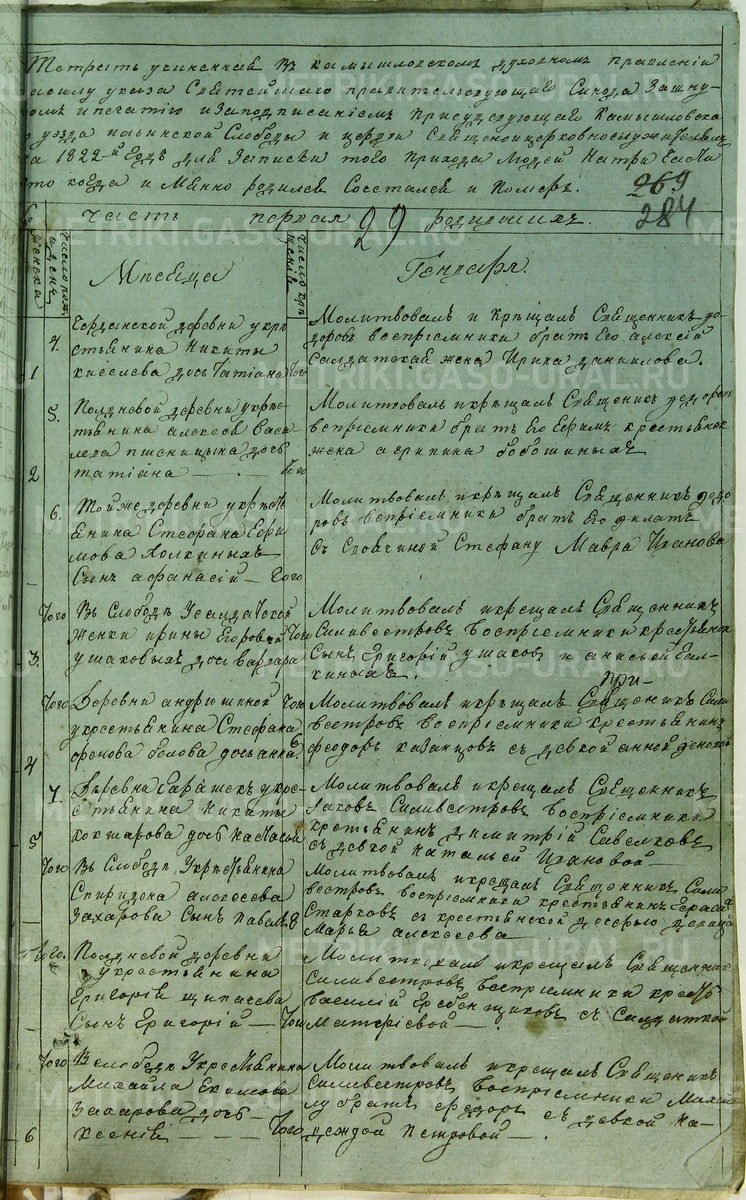 Тетрать учиненная В камышловскомъ духовномъ правленіи
посилу указа Святейшаго правительствующаго Синода Зашну-
ромъ ипечатію изаподписаніемъ присудствующаго Камышловска
уезда Слободы и церкви Священноицерковнослужителямъ
на 1822-й годъ для Записки того прихода людей Натри Части
кто когда и Мянно родился Сосетался и Померъ. 269
284
Часть первая 29 родившихъ.
Женска
Число рож.
Мѣсяца
Генваря.
4. деревни укре
стьянина Никиты
1 киселева дочь Татiана того
Молитвовалъ и Крѣщалъ Священникъ фе-
доровъ воспріемники братъ Его алексѣй
Салдатская жена Ирина данилова.
5. Полдневой деревни укрѣс-
тьянина алексея васи
лева пшеницына дочь
2 татiана
Молитвовалъ икрѣщалъ Священикъ
воспріемники братъ Его Ефимъ крестьянск
жена агрипина бобошиныхъ
6. Тойже деревни укрѣсть
янина Стефана Ефи
мова Холкиныхъ
Сынъ афанасій — того
Молитвовалъ икрѣщалъ Священникъ федо
ровъ воспріемники братъ Его
Стефану Мавра Иванова
того Въ Слободѣ Усалдатской
женки ирины Егоровой того
3. ушаковыхъ дочь варвара
Молитвовалъ икрещалъ Священникъ
Силивестровъ воспріемники крестьянск
Сынъ Григорій ушаковъ и анисьей Гал-
киныхъ.
при-
того Деревни андрюшиной того
укрестьянина Стефана
4 белова дочь анна 6.
Молитвовалъ икрещалъ Священикъ Сили
вестровъ воспріемники крестьянинъ
феодоръ казанцовъ съ девкой анной
7. Деревни укре-
стьянина Никиты
5 кокшарова дочь настасья
Молитвовалъ икрещалъ Священникъ
Иаковъ Силивестровъ воспріемники
крестьянинъ димитрій Савелковъ
съ девкой натальей Ивановой —
того Въ Слободѣ Укрестьянина
Спиридона алексеева
Захарова Сынъ павелъ 8
Молитвовалъ икрещалъ Священникъ Сили
вестровъ воспріемники крестьянинъ
Старковъ съ крестьянской дочерью девица
Марья алексеева
того. Полдневой деревни
укрестьянина
Григорія щипачева
Сынъ Григорій — того
Молитвовалъ икрещалъ Священник
Силивестровъ воспріемники кресть
василій Гребенщиковъ съ Салдаткой
Матфіевой —
того Вслободе Укрестьянина
Михайла Екимова
Захарова дочь
6 ксенія — — — того
Молитвовалъ икрещалъ Священикъ
Силивестровъ воспріемники Михаи
лу братъ федоръ съ девкой На-
деждой Петровой —.
METRIKI.GASO-URAL.RU